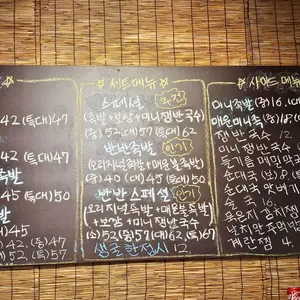 42 (특대)47
42 (특대)47
족발
45 (특대)50
45
42. (중)47
52. (특)57
세트메뉴
스페셜 추천
(족발+보쌈+미니쟁반국수)
(중)52 (대)57 (특대)62
반반족발 인기
(오리지널족발+매운불족발)
(중)40 (대)45 (특대)50
반반 스페셜 인기
(오리지널족발+매운불족발)
+보쌈+미니쟁반국수
(소)52 (중)57 (대)62 (특)67
생굴 한접시 12.
사이드 메뉴
미니족발 (중)16.
매운미니족 (중)18
쟁반국수
들기름메밀막
순대국
순대국 맛배기
술국 16.
계란찜 4.